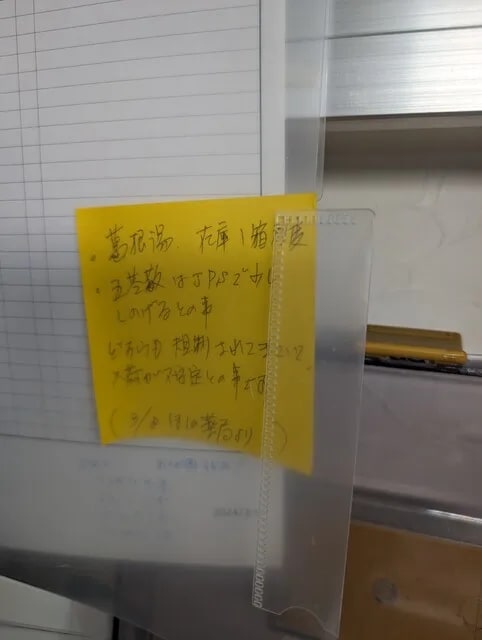 ・葛根湯、在庫1箱程度
・五苓散はJPSで少し
しのげるとの事
どちらも規制されてきていて
入荷が不安定との事です
(3/8 薬局より)